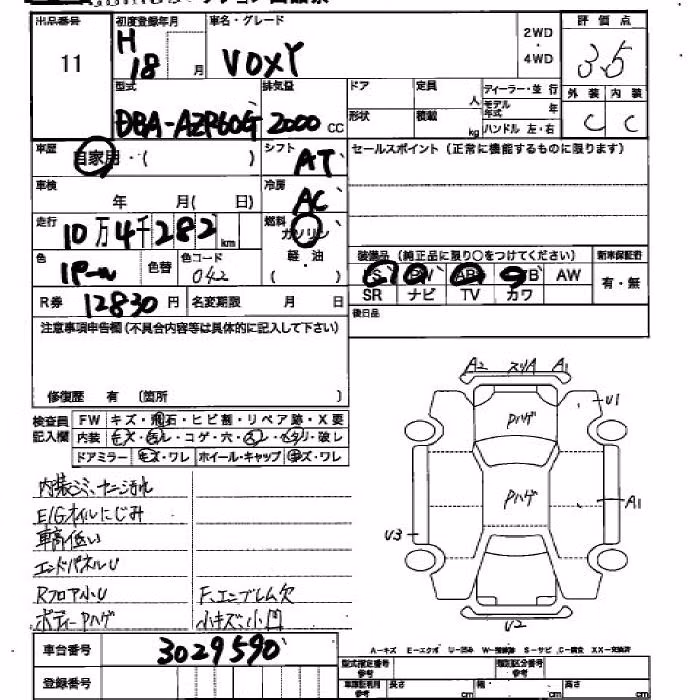 出品番号
11
初度登録年月
H 18 月
車名・グレード
VOXY
2WD
・
4WD
評価点
3.5
型式
DBA-AZR60G
排気量
2000 CC
ドア
定員
人
形状
積載
kg
ディーラー・並 行
モデル年式 年
ハンドル 左・右
外装
C
内装
C
車歴
自家用・( )
シフト
AT
セールスポイント(正常に機能するものに限ります)
車検
年 月( 日)
冷房
AC
走行
10万4千282 km
燃料
ガソリン
軽・油
( )
色
色替
色コード
042
装備品(純正品に限り○をつけてください)
AW
SR ナビ TV カワ
新車保証書
有・無
R券
12830 円
名変期限 月 日
後日品
注意事項申告欄(不具合内容等は具体的に記入して下さい)
修復歴 有 (箇所 )
検査員
記入欄
FW キズ・飛石・ヒビ割・リペア跡・X要
内装 キズ・コゲ・穴・スレ・破レ
ドアミラー キズ・ワレ ホイール・キャップ キズ・ワレ
A2 スリA A1
U1
Pハゲ
Pハゲ
A1
U3
U2
内装シミ、ヤニ汚れ
E/Gオイルにじみ
車高低い
エンドパネルU
Rフロア小U
F、エンブレム欠
ボディーPハゲ
小キズ、小凹
車台番号
3029590
登録番号
A-キズ E-エクボ U-凹み W-補修跡 S-サビ C-腐食 XX-交換済
型式指定番号
参考
類別区分番号
参考
長さ cm
幅 cm
高さ cm